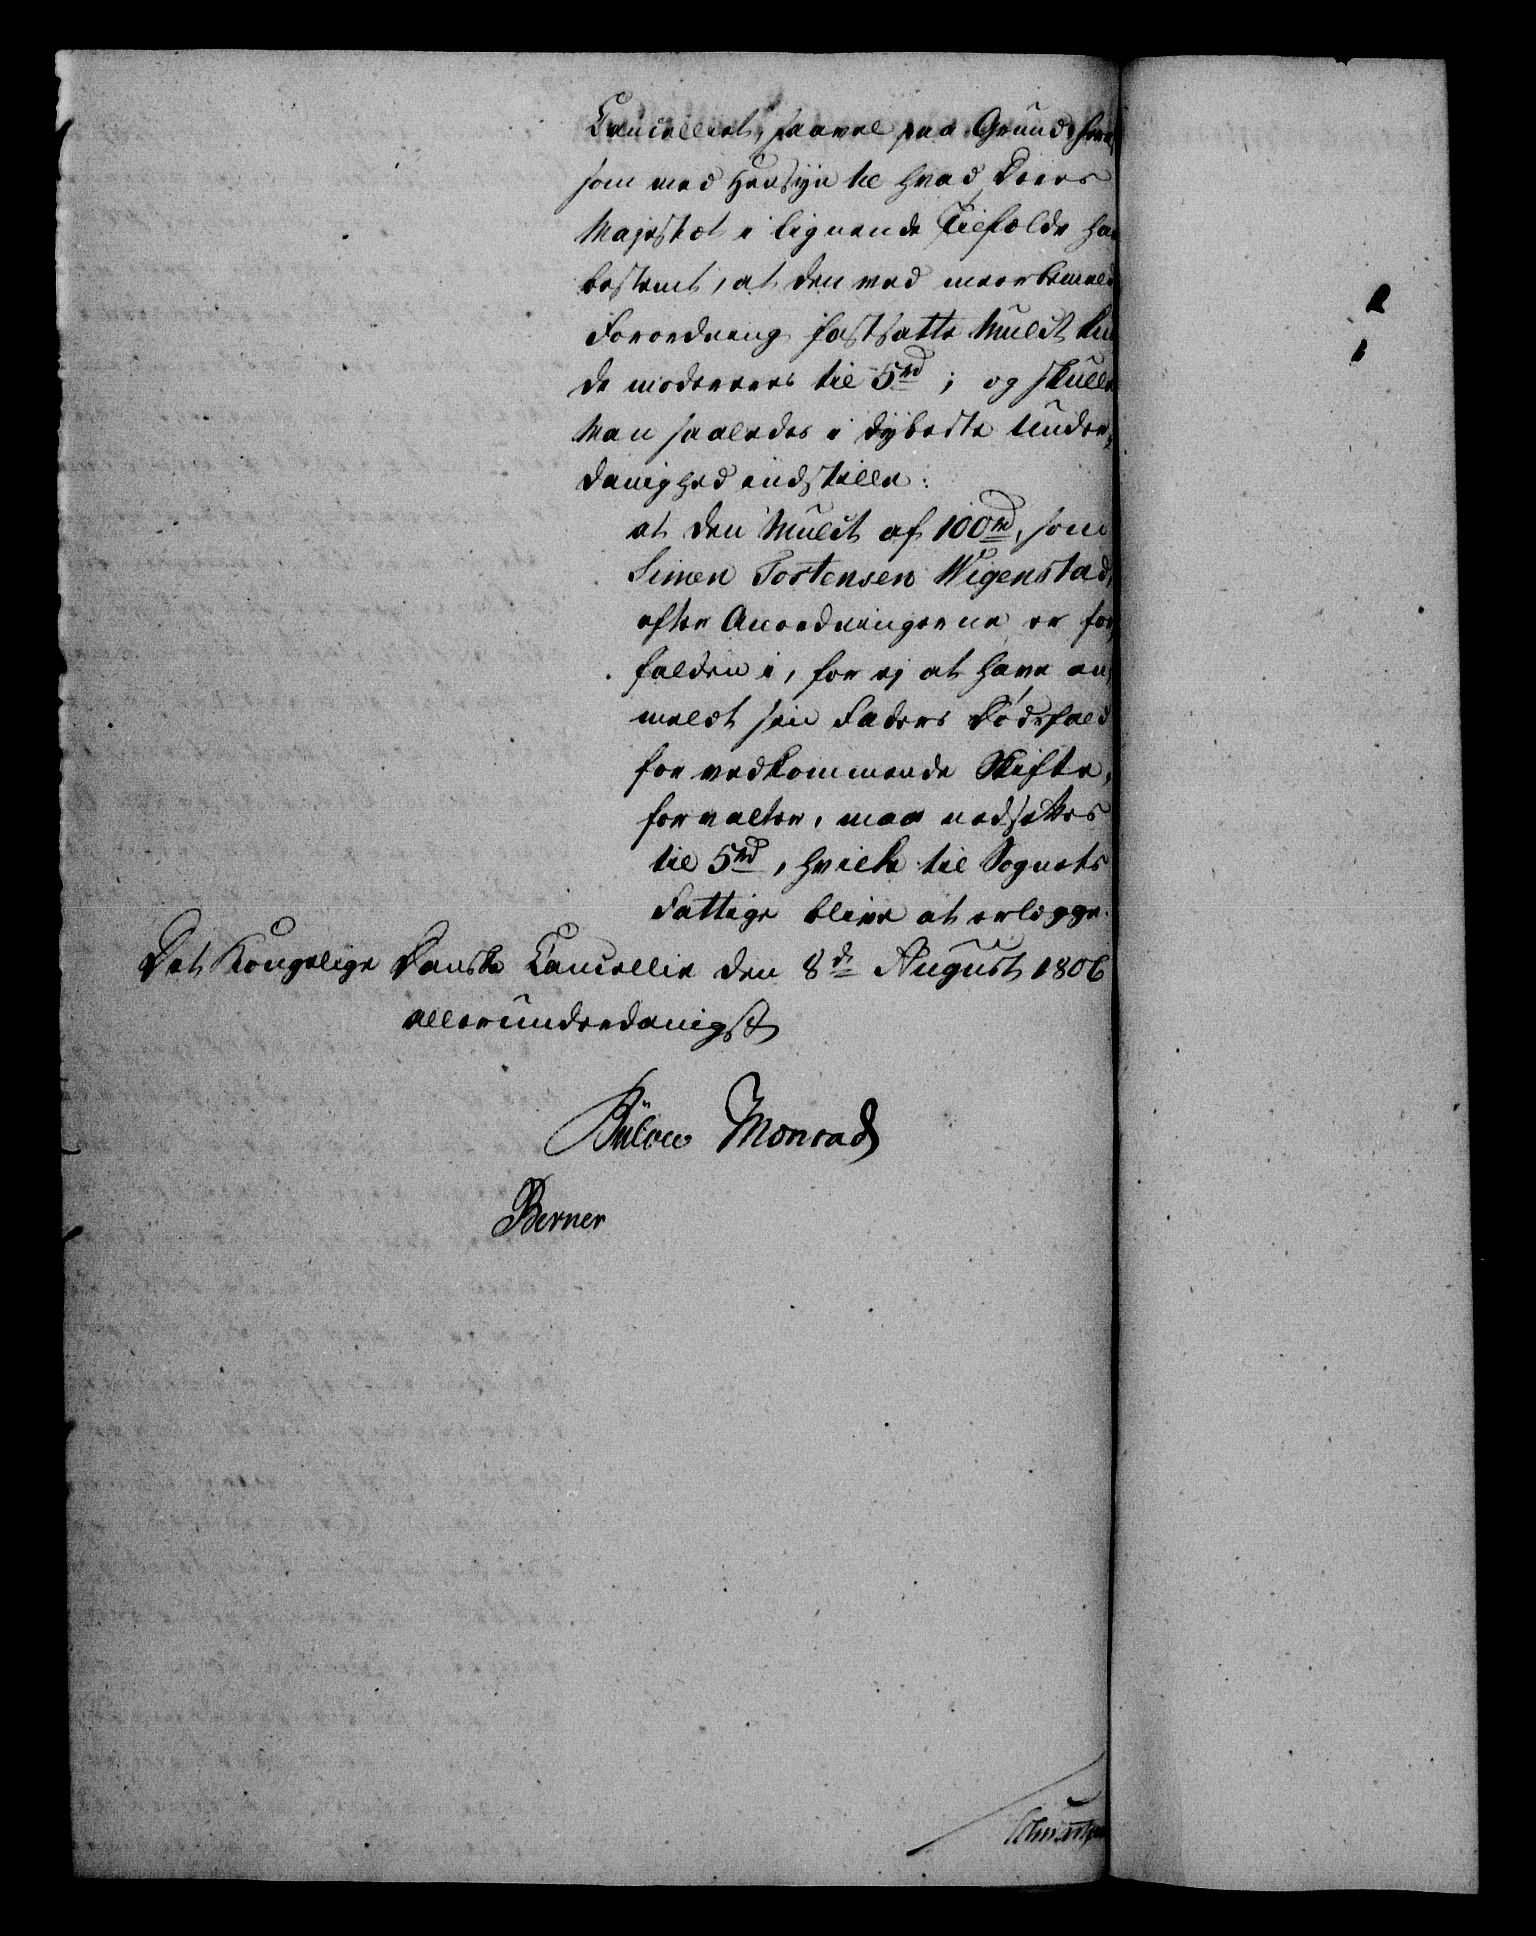 Cancelliet, saavel paa Grund heraf,
som med Hensyn til hvad Deres
Majestæt i lignende Tilfælde har
bestemt, at den ved meerbemeldte
Forordning fastsatte Mulct kun-
de modereres til 5 rd; og skulle
Man saaledes i dybeste Under,
danighed indstille:
at den Mulct af 100 rd, som
Simen Tostensen Wigenstad,
efter Anordningerne er for,
falden i, for ej at have an,
meldt sin Faders Dødsfald
for vedkommende Skifte,
forvalter, maa nedsættes
til 5 rd, hvilke til Sognets
Fattige blive at erlægge.
Det Kongelige Danske Cancellie den 8de August 1806
allerunderdanigst
Bülow Monrad
Berner